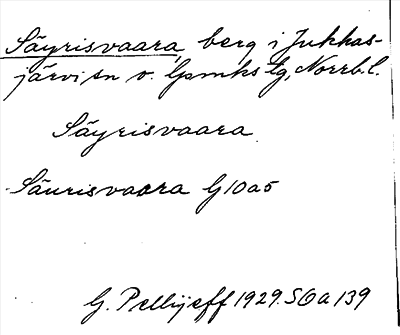 Säyrisvaara, berg i Jukkas-
järvi sn o. lpmks tg, Norrb. l.
Säyrisvaara
Säurisvaara G10a5
G. Pellijeff 1929. SOa 139